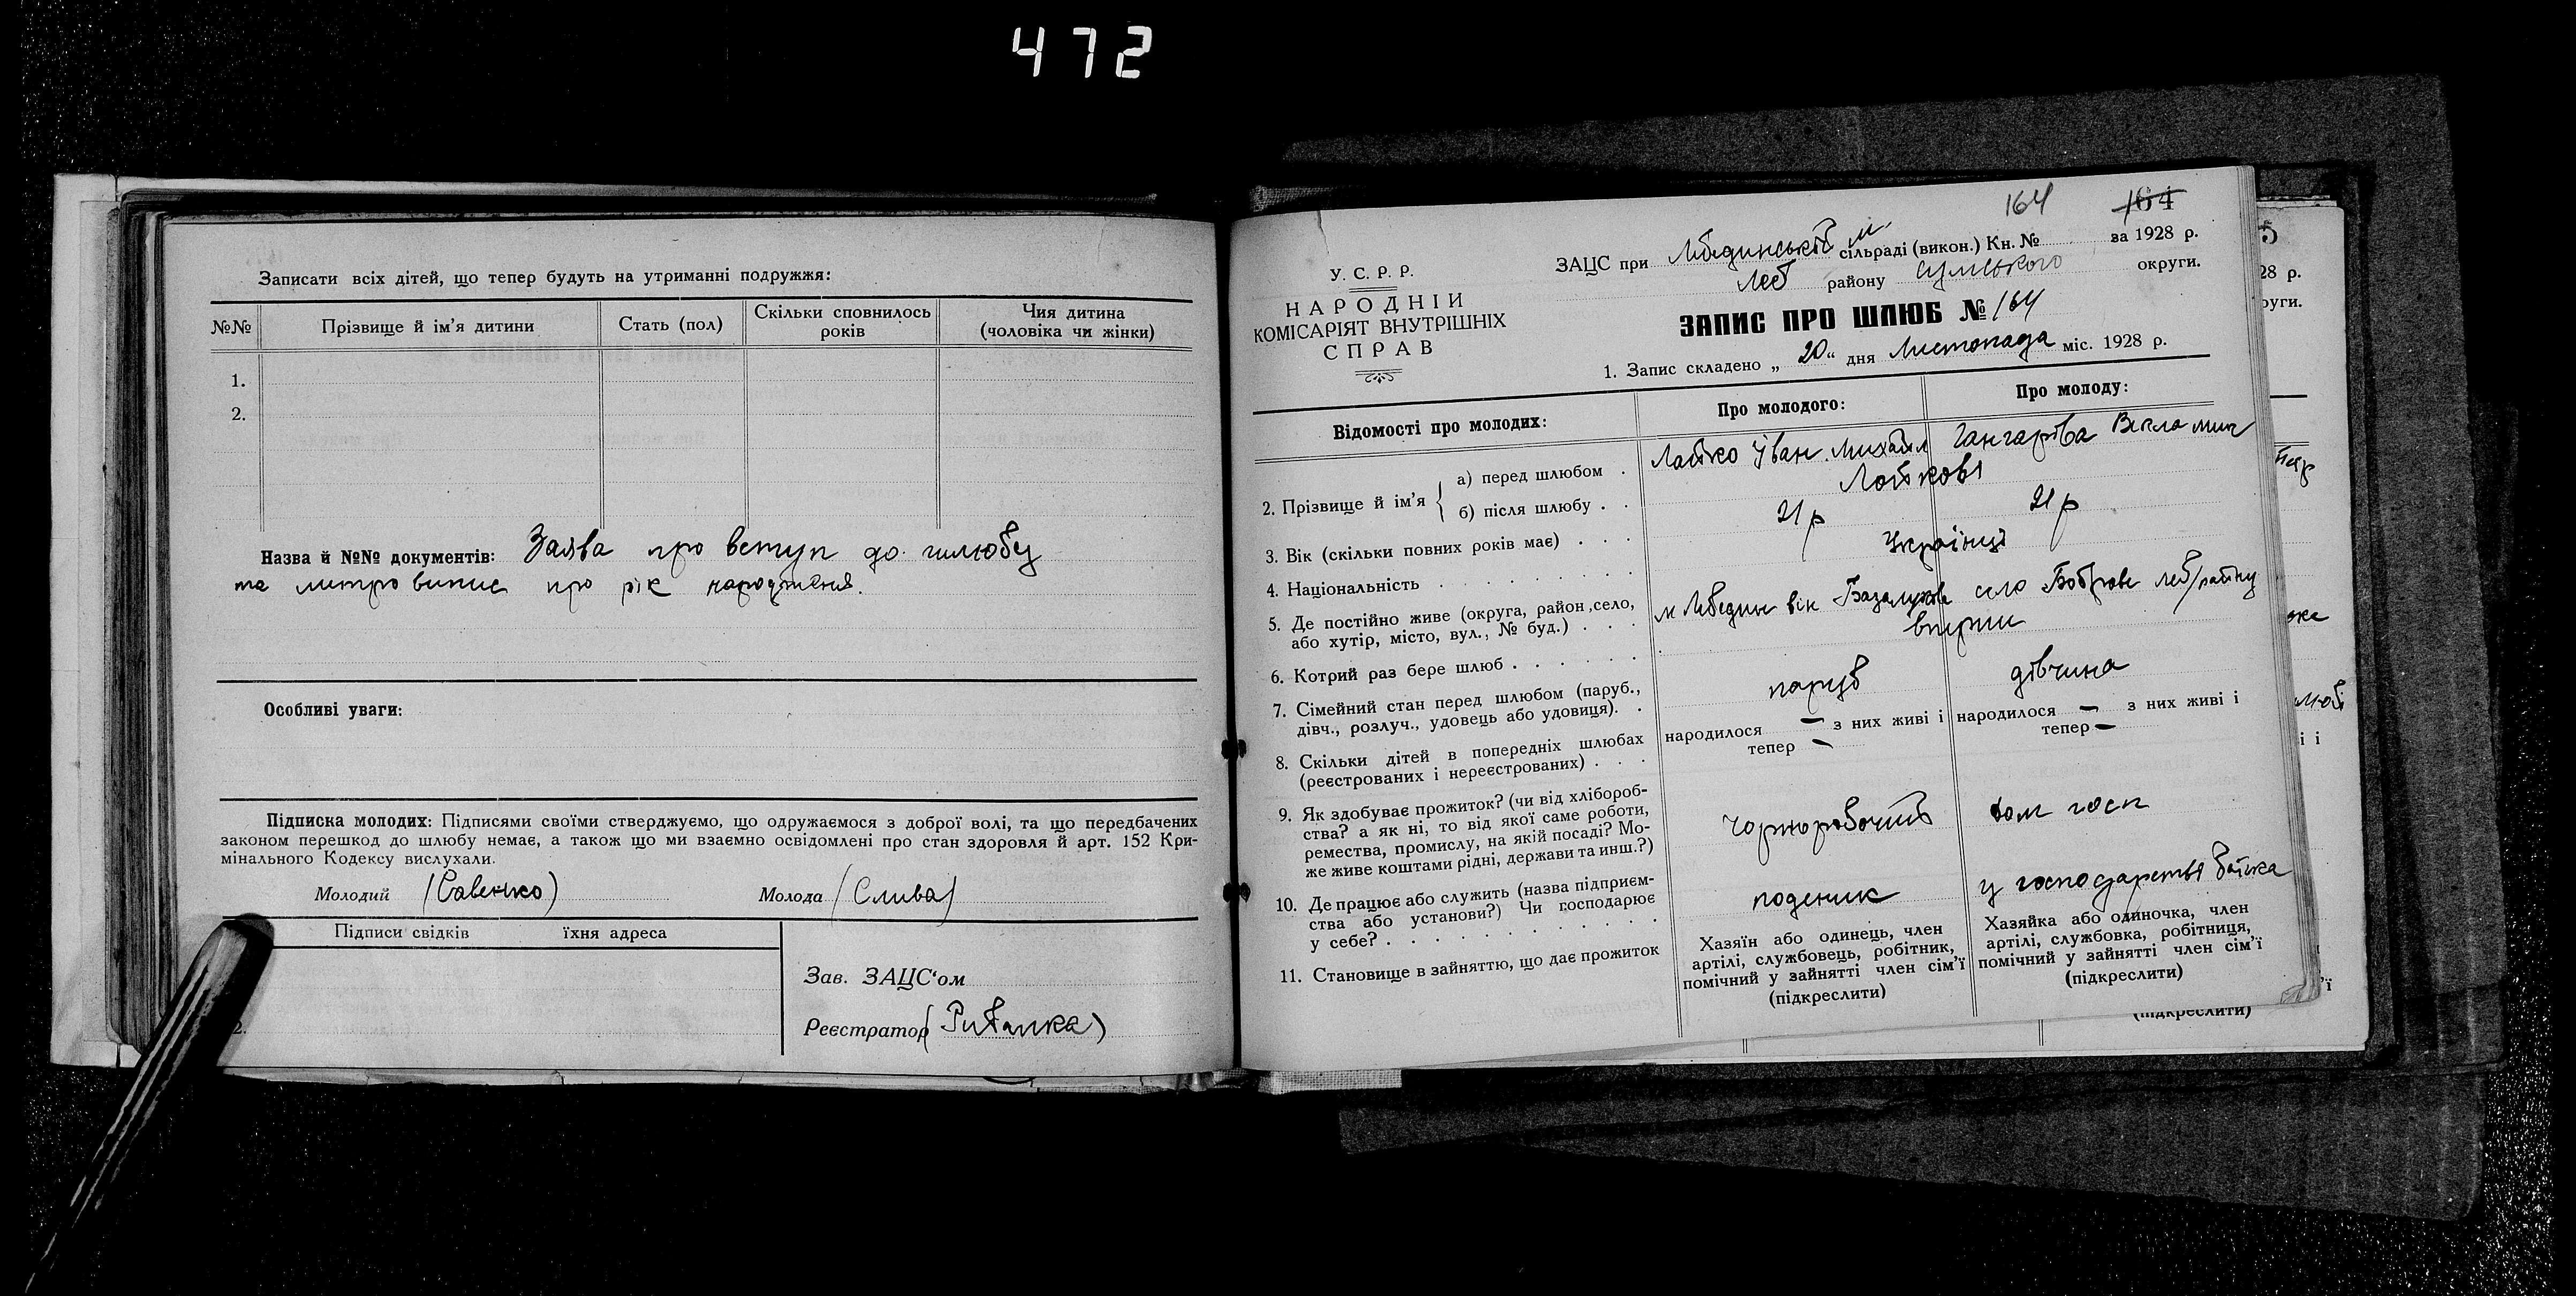 472
Записати всіх дітей, що тепер будуть на утриманні подружжя:
№№ Прізвище й ім'я дитини Стать (пол) Скільки сповнилось років Чия дитина (чоловіка чи жінки)
1.
2.
Назва й №№ документів: Заява про вступ до шлюбу
та метро випис про рік народження.
Особливі уваги:
Підписка молодих: Підписями своїми стверджуємо, що одружаємося з доброї волі, та що передбачених
законом перешкод до шлюбу немає, а також що ми взаємно освідомлені про стан здоров'я й арт. 152 Кри-
мінального Кодексу вислухали.
Молодий (Савенко) Молода (Слива)
Підписи свідків їхня адреса
2.
Зав. ЗАЦС'ом
Реєстратор (Рибалка)
164 164
У. С. Р. Р.
НАРОДНІЙ
КОМІСАРІЯТ ВНУТРІШНІХ
СПРАВ
ЗАЦС при Лебединській м. сільраді (викон.) Кн. № за 1928 р.
Леб району Сумського округи.
ЗАПИС ПРО ШЛЮБ № 164
1. Запис складено „20“ дня Листопада міс. 1928 р.
Відомості про молодих: Про молодого: Про молоду:
2. Прізвище й ім'я { а) перед шлюбом . Лайко Іван Михайл Векла
б) після шлюбу . . Лайкові
3. Вік (скільки повних років має) . . . 21 р 21 р
4. Національність . . . . . . . . Українці
5. Де постійно живе (округа, район, село,
або хутір, місто, вул., № буд.) . . . м Лебедин село Боброве леб/району
6. Котрий раз бере шлюб . . . . . . вперше
7. Сімейний стан перед шлюбом (паруб.,
дівч., розлуч., удовець або удовиця). . паруб дівчина
8. Скільки дітей в попередніх шлюбах
(реєстрованих і нереєстрованих) . . . народилося — з них живі і тепер — народилося — з них живі і тепер —
9. Як здобуває прожиток? (чи від хлібороб-
ства? а як ні, то від якої саме роботи,
ремества, промислу, на якій посаді? Мо-
же живе коштами рідні, держави та инш.?) Чорноробочий дом госп
10. Де працює або служить (назва підприєм-
ства або установи?) Чи господарює
у себе? . . . . . . . . . . поденик у господарстві батька
11. Становище в зайняттю, що дає прожиток
Хазяїн або одинець, член
артілі, службовець, робітник,
помічний у зайнятті член сім'ї
(підкреслити)
Хазяйка або одиночка, член
артілі, службовка, робітниця,
помічний у зайнятті член сім'ї
(підкреслити)
5
28 р.
руги.
(підкреслити)